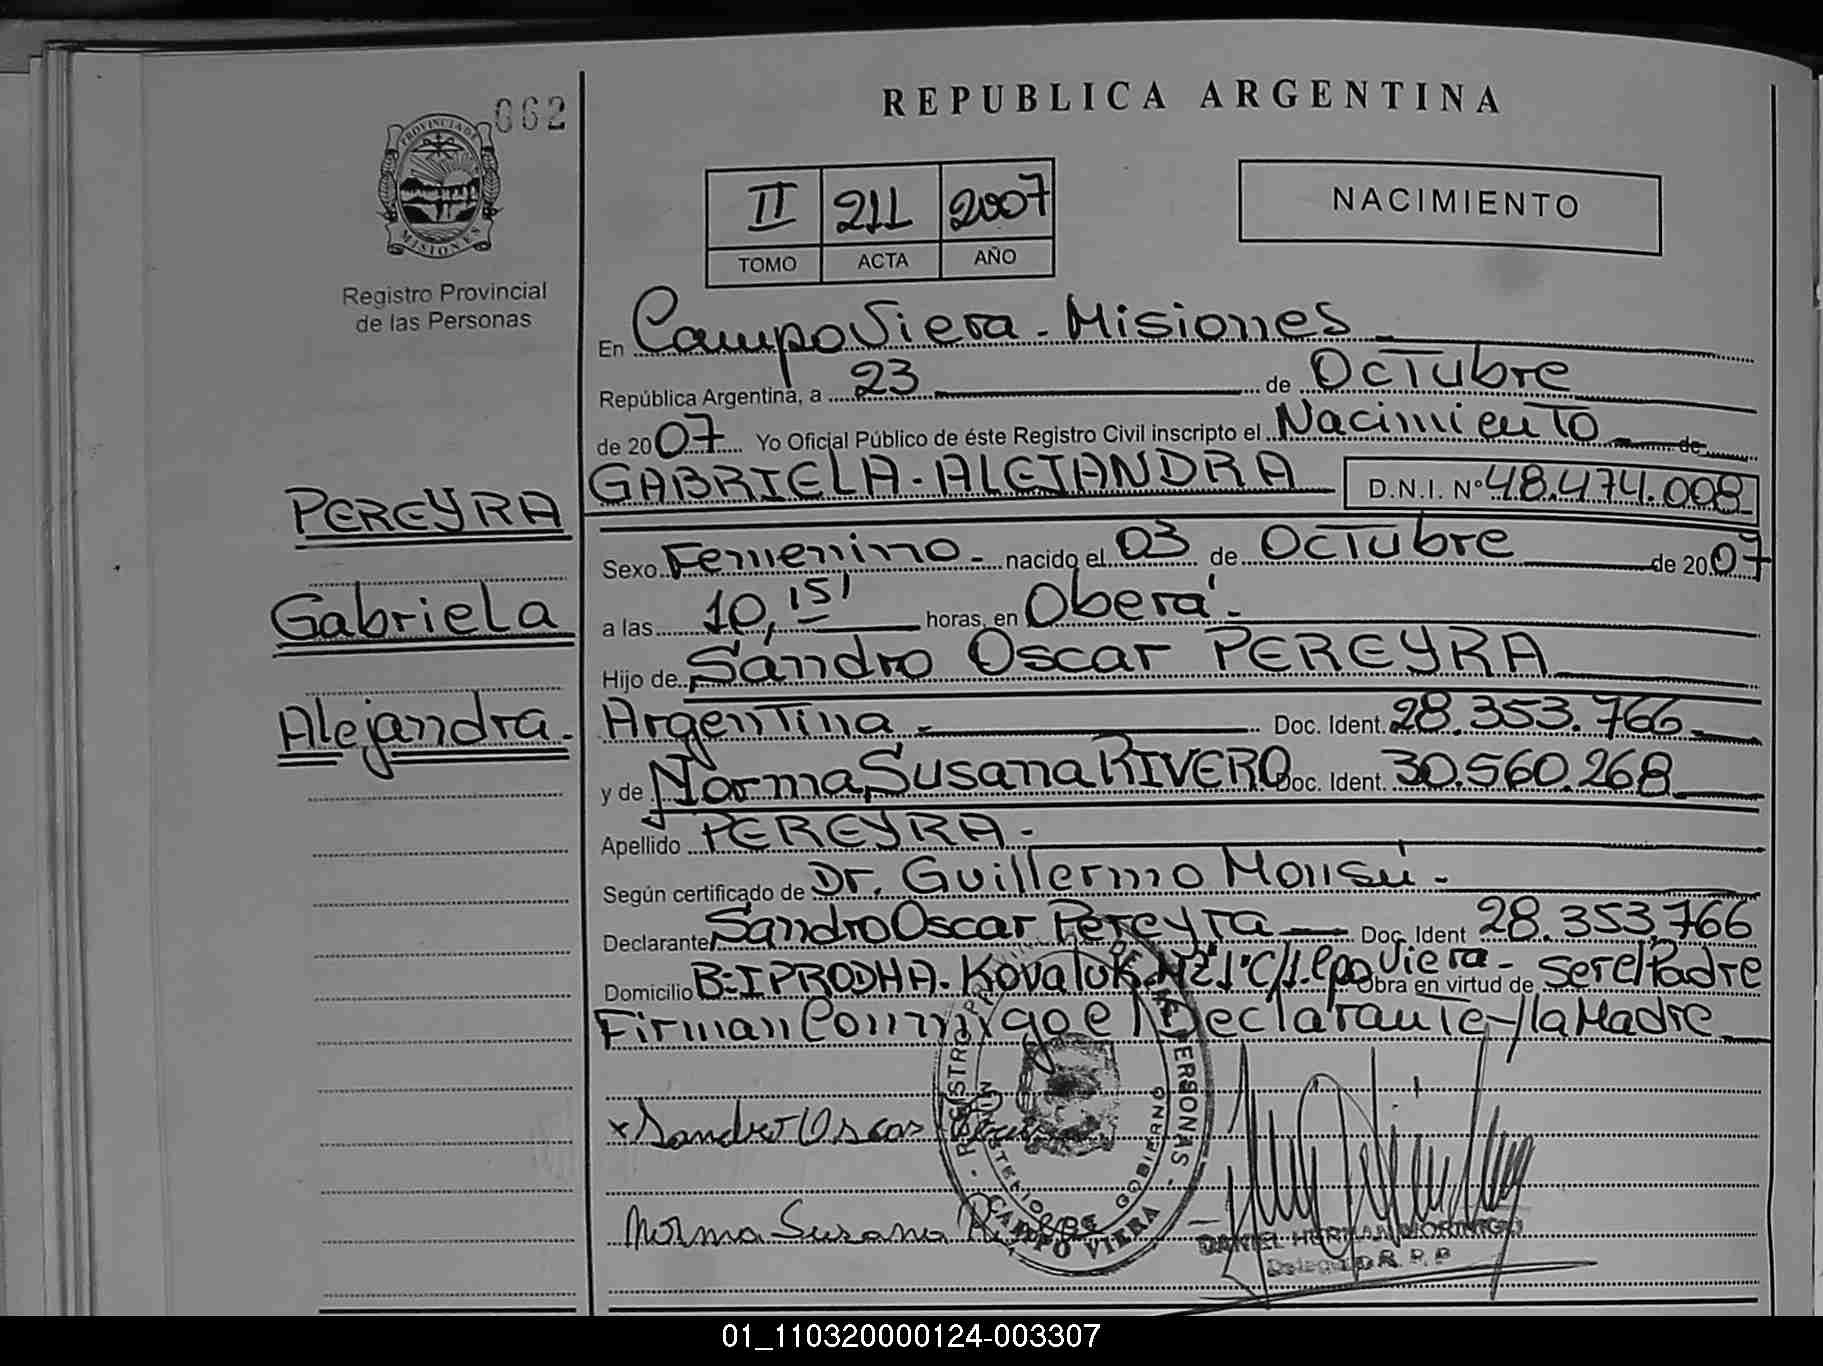 062
REPUBLICA ARGENTINA
PROVINCIA DE MISIONES
II 211 2007
TOMO ACTA AÑO
NACIMIENTO
Registro Provincial
de las Personas
En Campo Viera - Misiones
República Argentina, a 23 de Octubre
de 2007 Yo Oficial Público de éste Registro Civil inscripto el Nacimiento de
GABRIELA - ALEJANDRA D.N.I. Nº 48.474.008
PEREYRA
Gabriela
Alejandra.
Sexo Femenino - nacido el 03 de Octubre de 2007
a las 10,15' horas, en Oberá -
Hijo de Sandro Oscar PEREYRA
Argentina - Doc. Ident. 28.353.766
y de Norma Susana RIVERO Doc. Ident. 30.560.268
Apellido PEREYRA -
Según certificado de Dr. Guillermo Monsú -
Declarante Sandro Oscar Pereyra Doc. Ident 28.353.766
Domicilio B: IPRODHA. Kovaluk C/1. Cpo Viera - Obra en virtud de ser el Padre
Firman Conmigo el Declarante y la Madre
x Sandro Oscar
Norma Susana
REGISTRO PERSONAS
GOBIERNO
CAMPO VIERA
DANIEL HERNAN MORINIGO
Delegado R. P. P
01_110320000124-003307